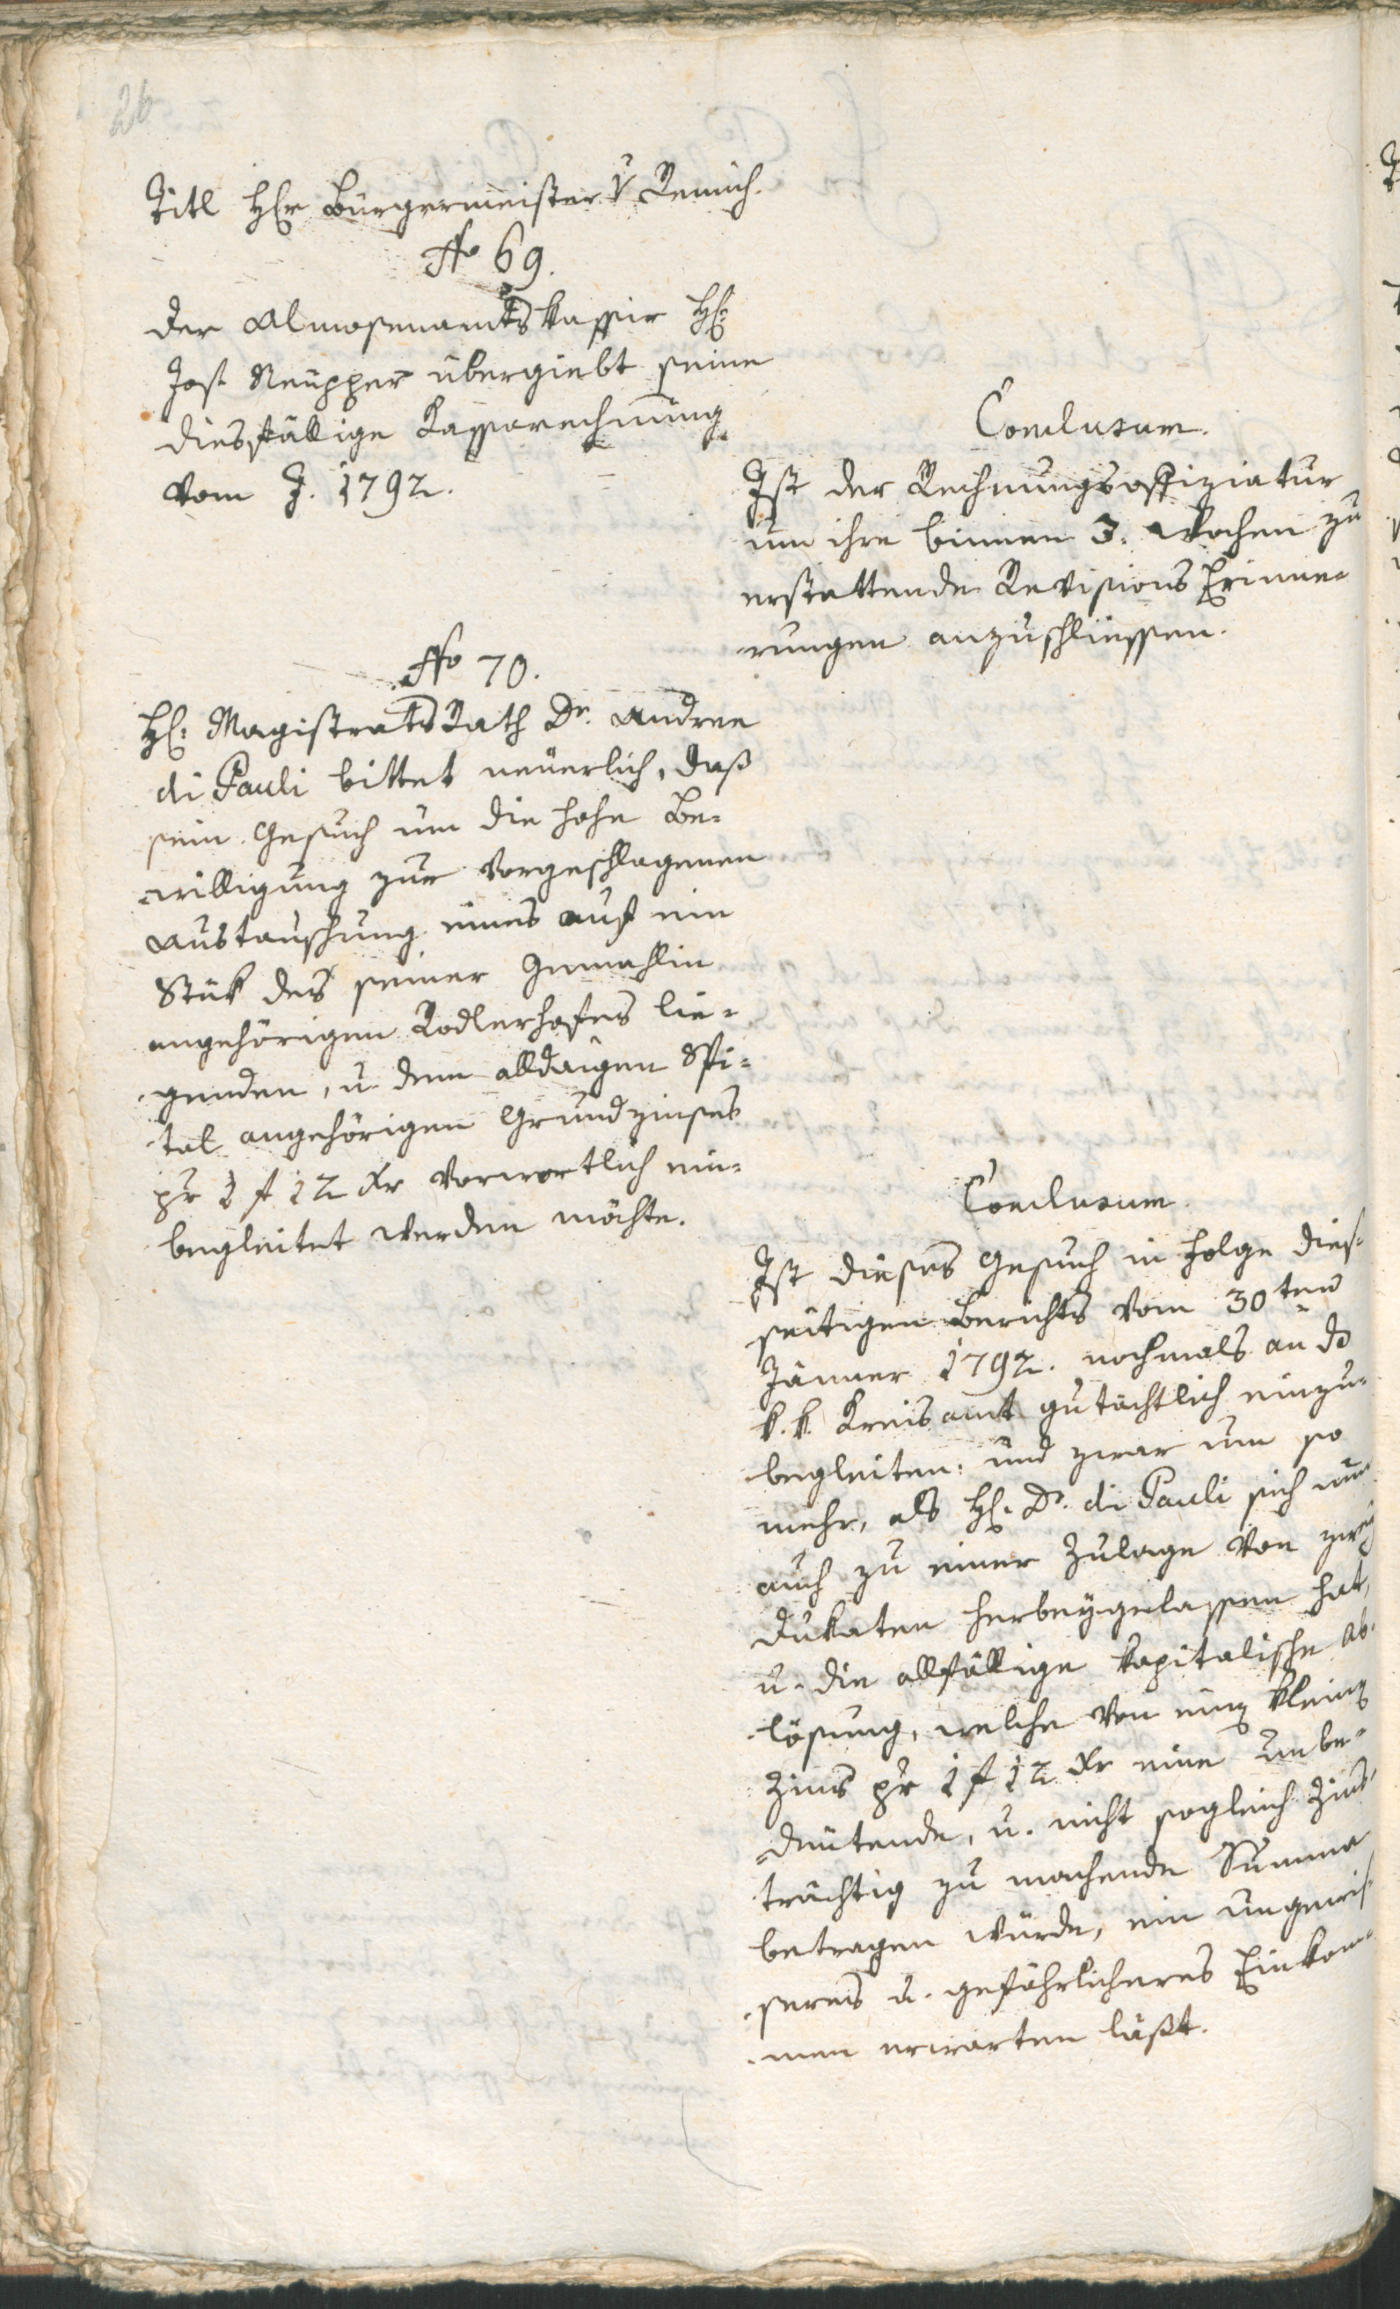 26
Titl H(er)r Bürgermeister v Remich.
No 69.
Der Almosenamtskassir H(err)
Jos. Neupper übergiebt seine
diesfällige Kassarechnung
vom J. 1792.
Conclusum.
Ist der Rechnungsoffiziatur
um ihre binnen 3. Wochen zu
erstattende Revisions Erinne-
rungen anzuschliessen.
No 70.
H: Magistrats Rath Dr. Andree
di Pauli bittet neuerlich, daß
sein Gesuch um die hohe Be-
willigung zur vorgeschlagenen
Austauschung eines auf ein
Stük des seiner Gemahlin
angehörigen Rodlerhofes lie-
genden, u. dem alldaigen Spi-
tal angehörigen Grundzinses
pr 1 f 12 xr vorwortlich ein-
begleitet werden möchte.
Conclusum
Ist dieses Gesuch in Folge dies-
seitigen Berichts vom 30ten
Jänner 1792. nochmals an do
k. k. Kreisamt gutächtlich einzu-
begleiten: und zwar um so
mehr, als H. Dr. di Pauli sich nun
auch zu einer Zulage von zwey
Dukaten herbeygelassen hat,
u. die allfällige kapitalische Ab-
lösung, welche von einem kleinen
Zins pr 1 f 12 xr eine unbe-
deutende, u. nicht sogleich Zins-
trächtig zu machende Summe
betragen würde, ein ungewis-
seres u. gefährlicheres Einkom-
men erwarten läßt.